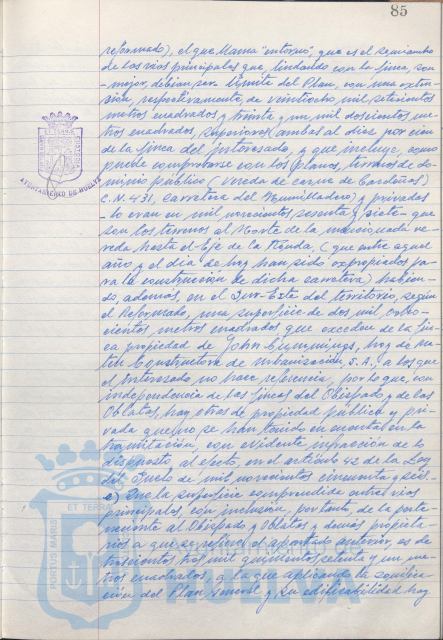 85
reformado), el que llama "entorno", que es el semiancho
de los vios principales que, lindando con la finca, son
mejor, debian ser límite del Plan, con una exten-
sión, respectivamente, de veintiocho mil setecientos
metros cuadrados y treinta y un mil doscientos me-
tros cuadrados, superiores (ambas al diez por cien
de la finca del interesado, y que incluye, como
puede comprobarse con los planos, terrenos de do-
minio público (Vereda de carne de Cardeñas)
C.N. 431, carretera del Humilladero) y privados
lo eran en mil novecientos sesenta y siete- que
son los terrenos al Norte de la mencionada ve-
reda hasta el Eje de la Ronda, (que entre aquel
año y el día de hoy han sido expropiados pa-
ra la construcción de dicha carretera) habien-
do, además, en el Sur-Este del territorio, según
el Reformado, una superficie de dos mil ocho-
cientos metros cuadrados que exceden de la fin-
ca propiedad de John Cummings, hoy de
Constructora de Urbanización, S.A., a los que
el Interesado no hace referencia, por lo que, con
independencia de las fincas del Obispado y de las
Oblatas, hay otras de propiedad pública y pri-
vada que no se han tenido en cuenta en la
tramitación, con evidente infracción de lo
dispuesto al efecto, en el artículo 42 de la Ley
del Suelo de mil novecientos cincuenta y seis.-
e) Que la superficie comprendida entre vios
principales, con inclusión, por tanto, de la perte-
neciente al Obispado y Oblatas y demás propieta-
rios a que se refiere el apartado anterior, es de
trescientos tres mil quinientos setenta y un me-
tros cuadrados, y la que aplicando la zonifica-
ción del Plan General y su edificabilidad hoy
AYUNTAMIENTO DE HUELVA
PORTUS MARIS ET TERRAE
Ayuntamiento de
HUELVA